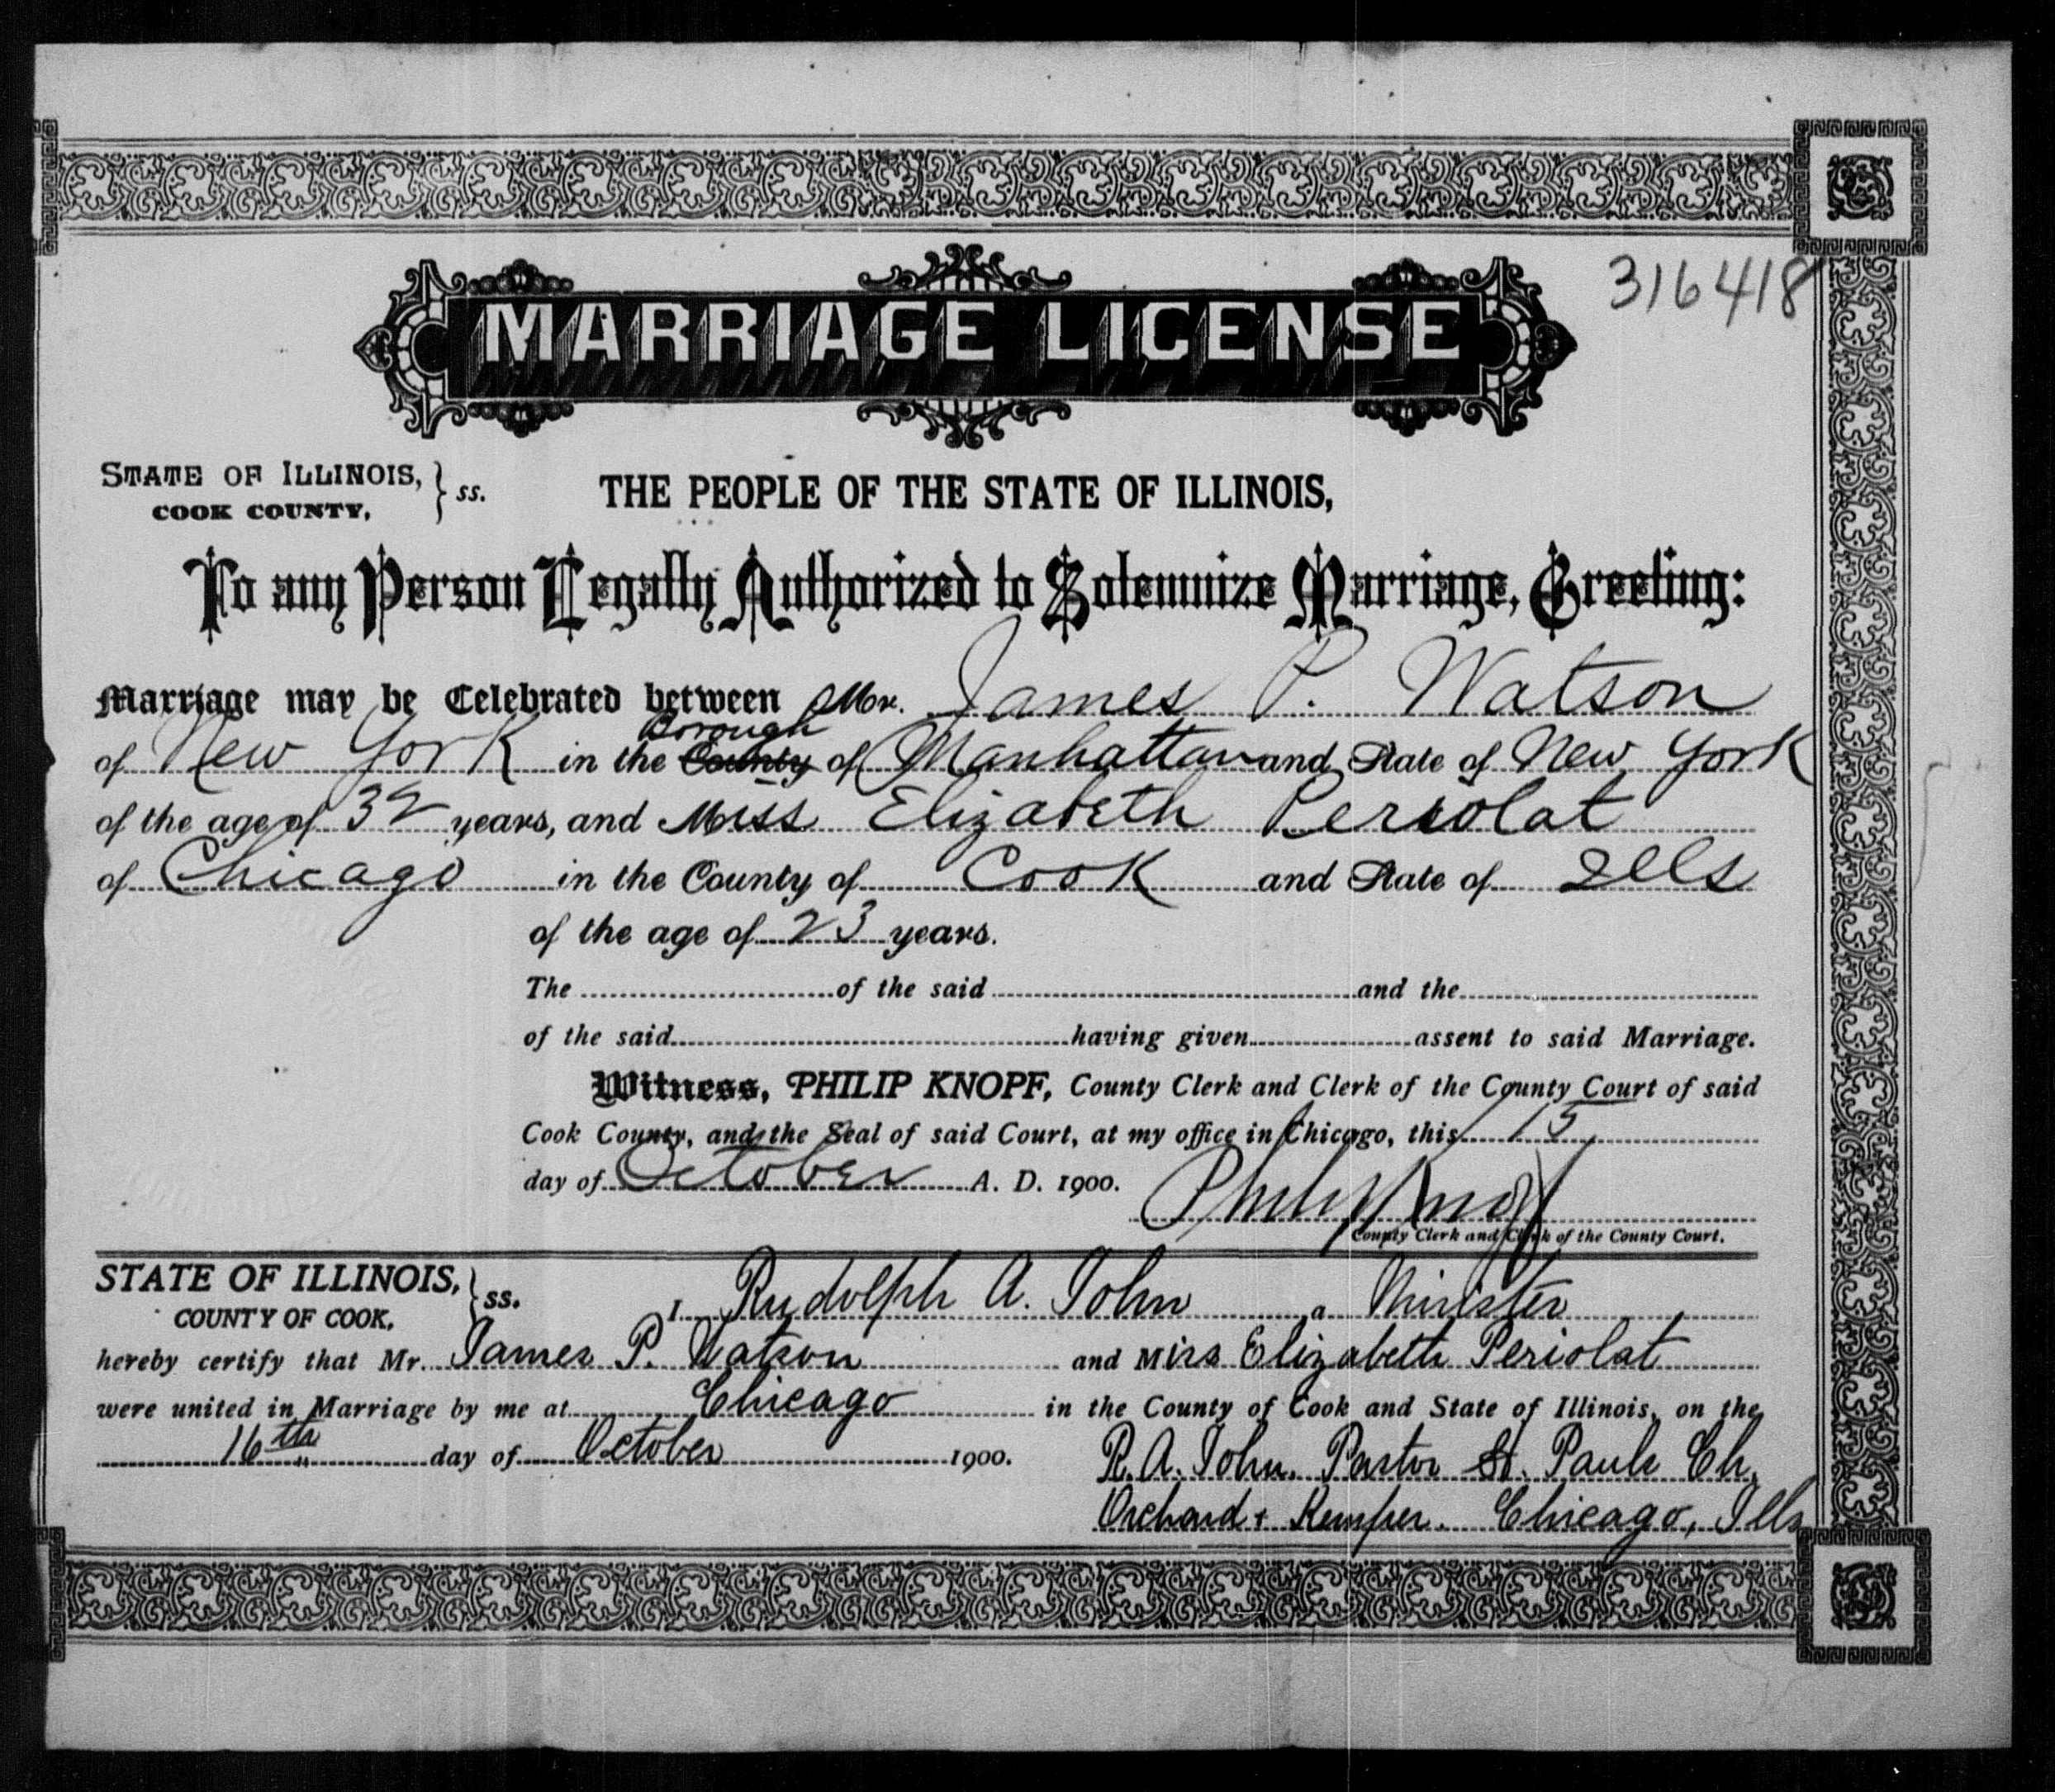 316418
MARRIAGE LICENSE
STATE OF ILLINOIS, } ss. THE PEOPLE OF THE STATE OF ILLINOIS,
COOK COUNTY,
To any Person Legally Authorized to Solemnize Marriage, Greeting:
Marriage may be Celebrated between Mr. James P. Watson
of New York in the County Borough of Manhattan and State of New York
of the age of 32 years, and Miss Elizabeth Periolat
of Chicago in the County of Cook and State of Ills
of the age of 23 years.
The of the said and the
of the said having given assent to said Marriage.
Witness, PHILIP KNOPF, County Clerk and Clerk of the County Court of said
Cook County, and the Seal of said Court, at my office in Chicago, this 15
day of October A. D. 1900. Philip Knopf
County Clerk and Clerk of the County Court.
STATE OF ILLINOIS, } ss. I Rudolph A. John a Minister
COUNTY OF COOK,
hereby certify that Mr. James P. Watson and Miss Elizabeth Periolat
were united in Marriage by me at Chicago in the County of Cook and State of Illinois, on the
16th day of October 1900. R. A. John. Pastor St. Pauls Ch.
Orchard + Kemper. Chicago, Ills